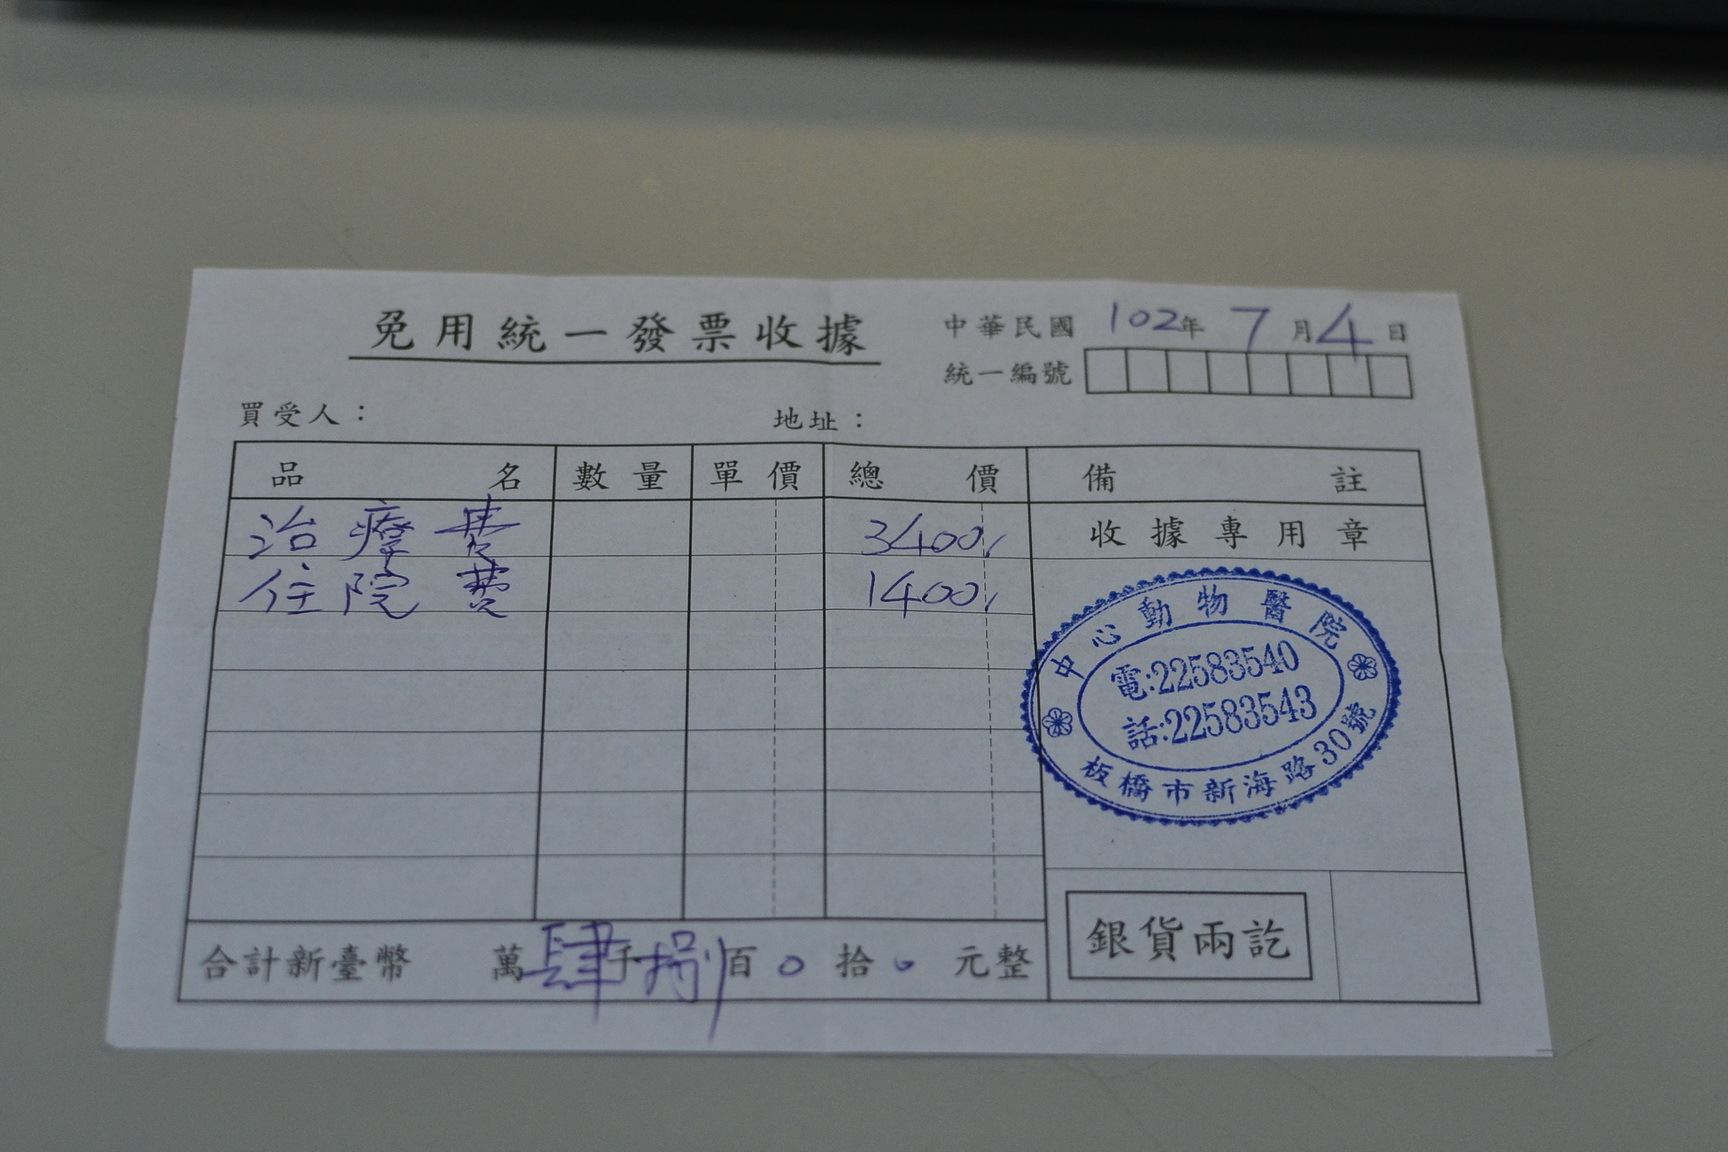 免用統一發票收據
中華民國 102年 7月4日
統一編號
買受人： 地址：
品名 數量 單價 總價 備註
治療費 3400
收據專用章
住院費 1400
中心動物醫院
電:22583540
話:22583543
板橋市新海路30號
合計新臺幣 萬肆千捌百0拾0元整
銀貨兩訖